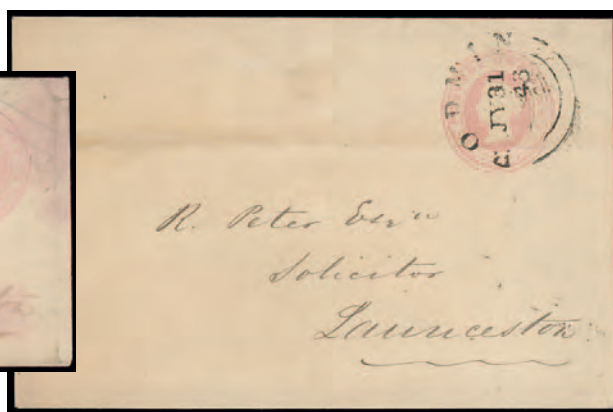 BODMIN
JY31
R. Peter Esqre
Solicitor
Launceston